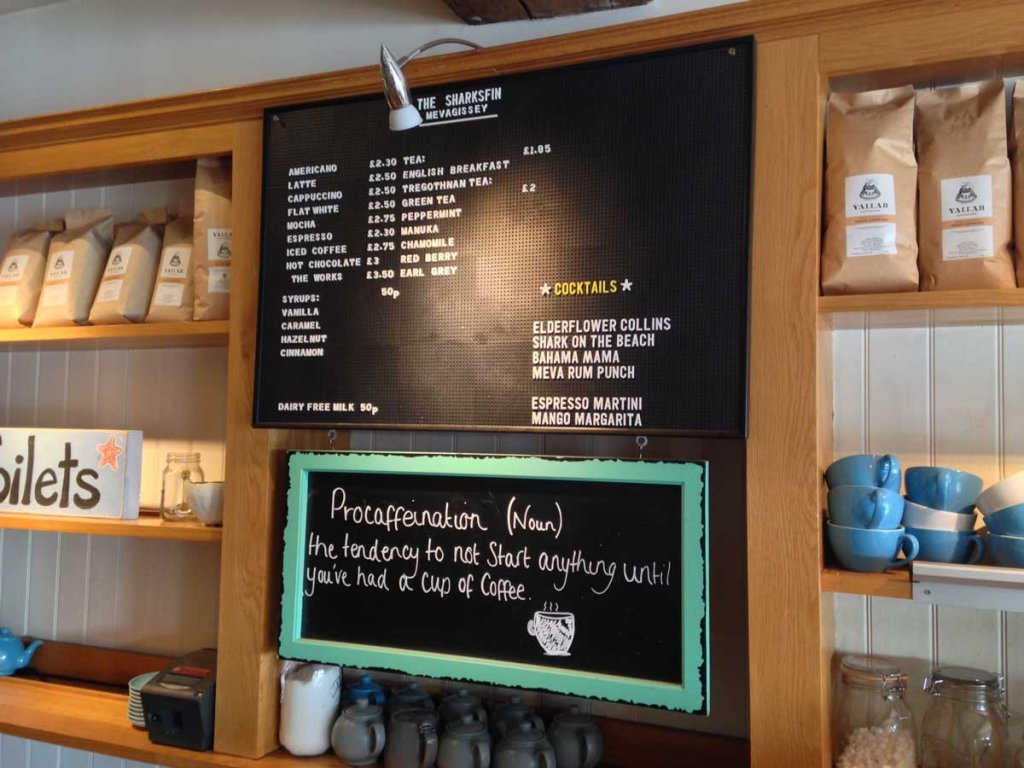 THE SHARKSFIN
MEVAGISSEY
AMERICANO £2.30
LATTE £2.50
CAPPUCCINO £2.50
FLAT WHITE £2.50
MOCHA £2.75
ESPRESSO £2.30
ICED COFFEE £2.75
HOT CHOCOLATE £3
THE WORKS £3.50
SYRUPS: 50p
VANILLA
CARAMEL
HAZELNUT
CINNAMON
DAIRY FREE MILK 50p
TEA: £1.85
ENGLISH BREAKFAST
TREGOTHNAN TEA: £2
GREEN TEA
PEPPERMINT
MANUKA
CHAMOMILE
RED BERRY
EARL GREY
COCKTAILS
ELDERFLOWER COLLINS
SHARK ON THE BEACH
BAHAMA MAMA
MEVA RUM PUNCH
ESPRESSO MARTINI
MANGO MARGARITA
Procaffeination (Noun)
the tendency to not Start anything until
you've had a cup of Coffee.
oilets
YALLAH
YALLAH